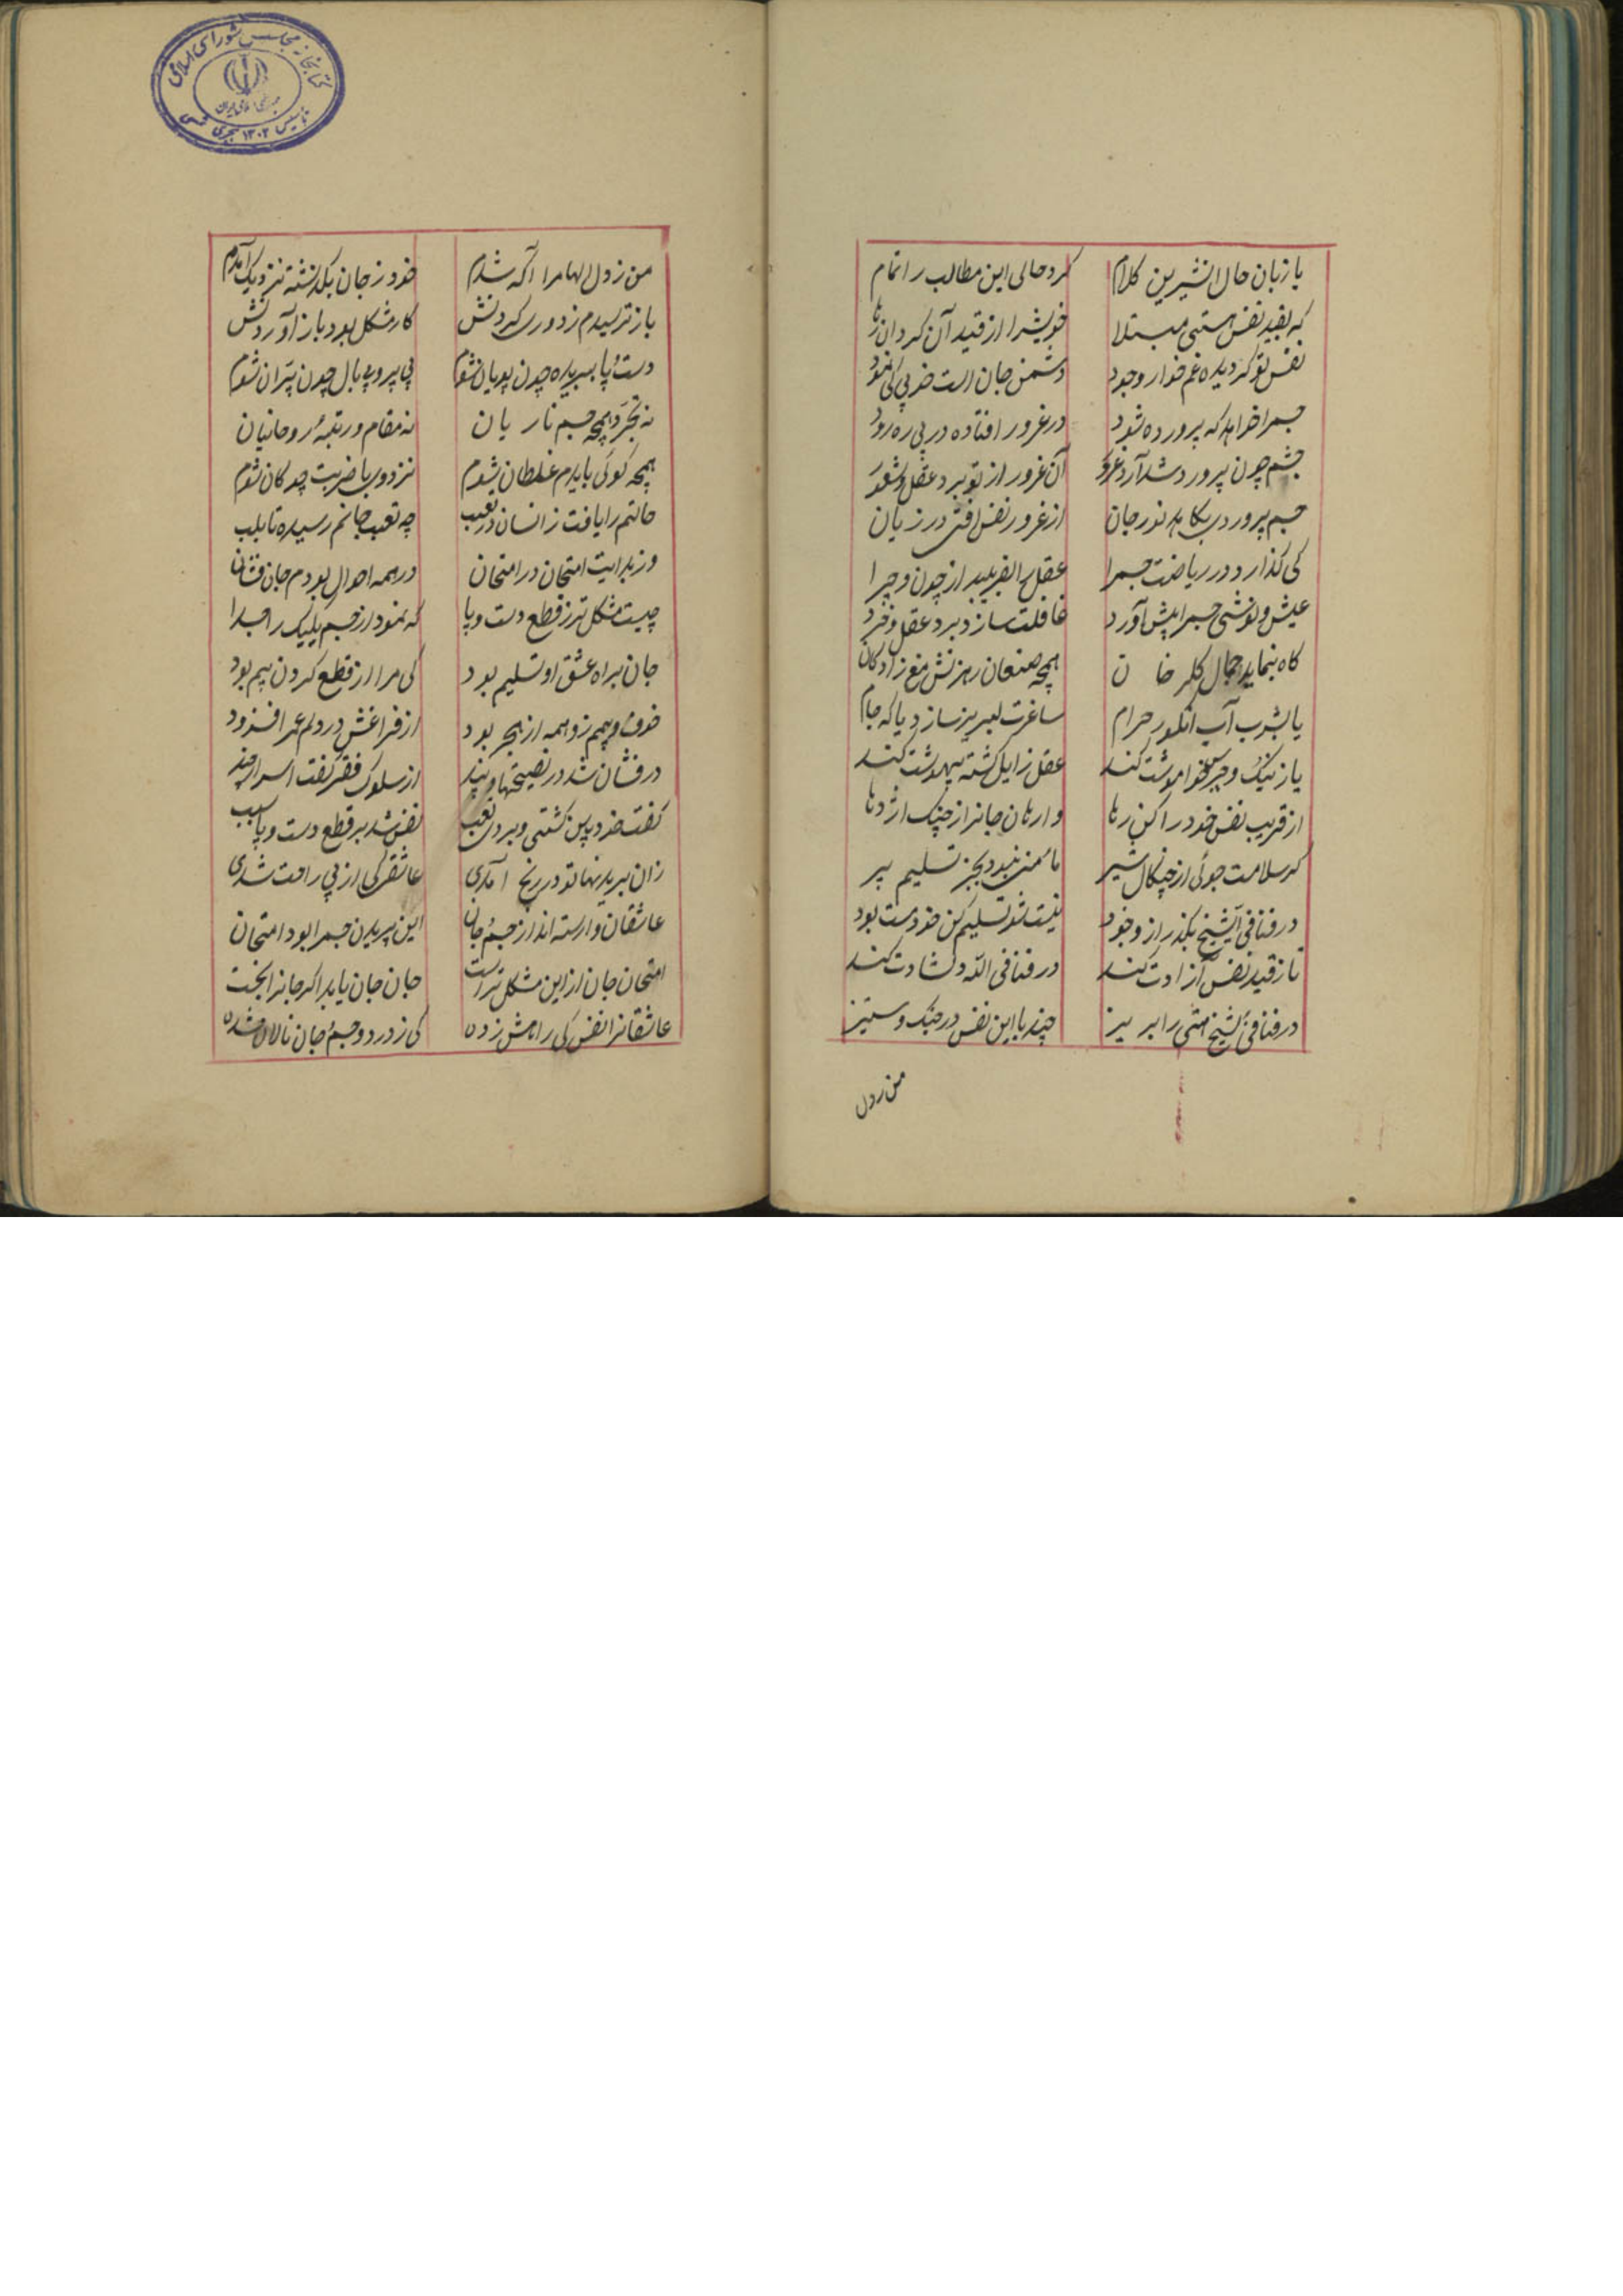 با زبان حال انشیرین کلام
کرد حالی این مطالب را تمام
که بقید نفس هستی مبتلا
خویشرا از قید آن گردان رها
نفس تو گردیده غمخوار وجود
دشمن جان است خوبی کی نمود
جسم را خواهد که پرورده شود
در غرور افتاده در بی ره رود
جسم چون پرورد شد آرد غرور
آن غرور از تو برد عقل و شعور
جسم پروردی بکاهد نور جان
از غرور نفس افتی در زیان
کی گذارد در ریاضت جسم را
عقل را بفریبد از چون و چرا
عیش و نوشی جسم را پیش آورد
غافلت سازد برد عقل و خرد
گاه بنماید جمال گلرخان
همچه صنعان رهزنش مغ زادگان
یا بشرب آب انگور حرام
ساغرت لبریز سازد یا که جام
یا ز نیک و خیر فراموشت کند
عقل زایل گشته بیهوشت کند
از فریب نفس خود را کن رها
وارهان جانرا ز چنگ اژدها
گر سلامت جوئی از چنگال شیر
مأمنی نبود بجز تسلیم پیر
در فنا فی الشیخ بگذر از وجود
نیست شو تسلیم کن خود هست بود
تا ز قید نفس آزادت کند
در فنا فی الله دلشادت کند
در فنا فی الشیخ هستی را بریز
چند با این نفس در جنگ و ستیز
من ز دل
من ز دل الهام را آگه شدم
خود ز جان بگذشته نزدیک آمدم
باز ترسیدم ز دوری کردنش
کار مشکل بود باز آوردنش
دست و پا ببریده چون پویان شوم
بی پر و بی بال چون پران شوم
نه تجرد همچه جسم ناریان
نه مقام و رتبهٔ روحانیان
همچه گوئی بایدم غلطان شوم
نزد وی با ضربت چوگان شوم
حالتم را یافت زانسان در تعب
چه تعب جانم رسیده تا بلب
وز بدایت امتحان در امتحان
در همه احوال بودم جان فشان
چیست مشکل تر ز قطع دست و پا
که نمود از جسم یک یک را جدا
جان براه عشق او تسلیم بود
کی مرا از قطع کردن بیم بود
خوف و بیم و واهمه از هجر بود
از فراغش درد دلم عمر افزود
در فشان شد در نصیحتها و پند
از سلوک فقر گفت اسرار چند
گفت خود بین گشتی و بردی تعب
نفس شد بر قطع دست و پا سبب
زان بریدنها تو در رنج آمدی
عاشقی کی از پی راحت شدی
عاشقان وارسته اند از جسم و جان
این بریدن جسم را بود امتحان
امتحان جان از این مشکل تر است
جان جان یابد اگر جانرا بخست
عاشقانرا نفس کی رامش زده
کی ز درد و جسم و جان نالان شده
کتابخانه مجلس شورای اسلامی
جمهوری اسلامی ایران
تأسیس ۱۳۰۲ هجری شمسی